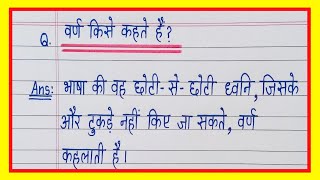 Q. वर्ण किसे कहते हैं?
Ans: भाषा की वह छोटी-से-छोटी ध्वनि, जिसके
और टुकड़े नहीं किए जा सकते, वर्ण
कहलाती है।